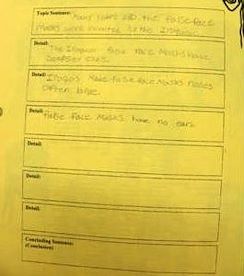 Topic Sentence: Many years ago the false face
masks were
Detail:
The Iroquois false face masks have
Detail: Iroquois false face masks noses
often large.
Detail: False Face Masks have no ears
Detail:
Detail:
Detail:
Concluding Sentence:
(Conclusion)